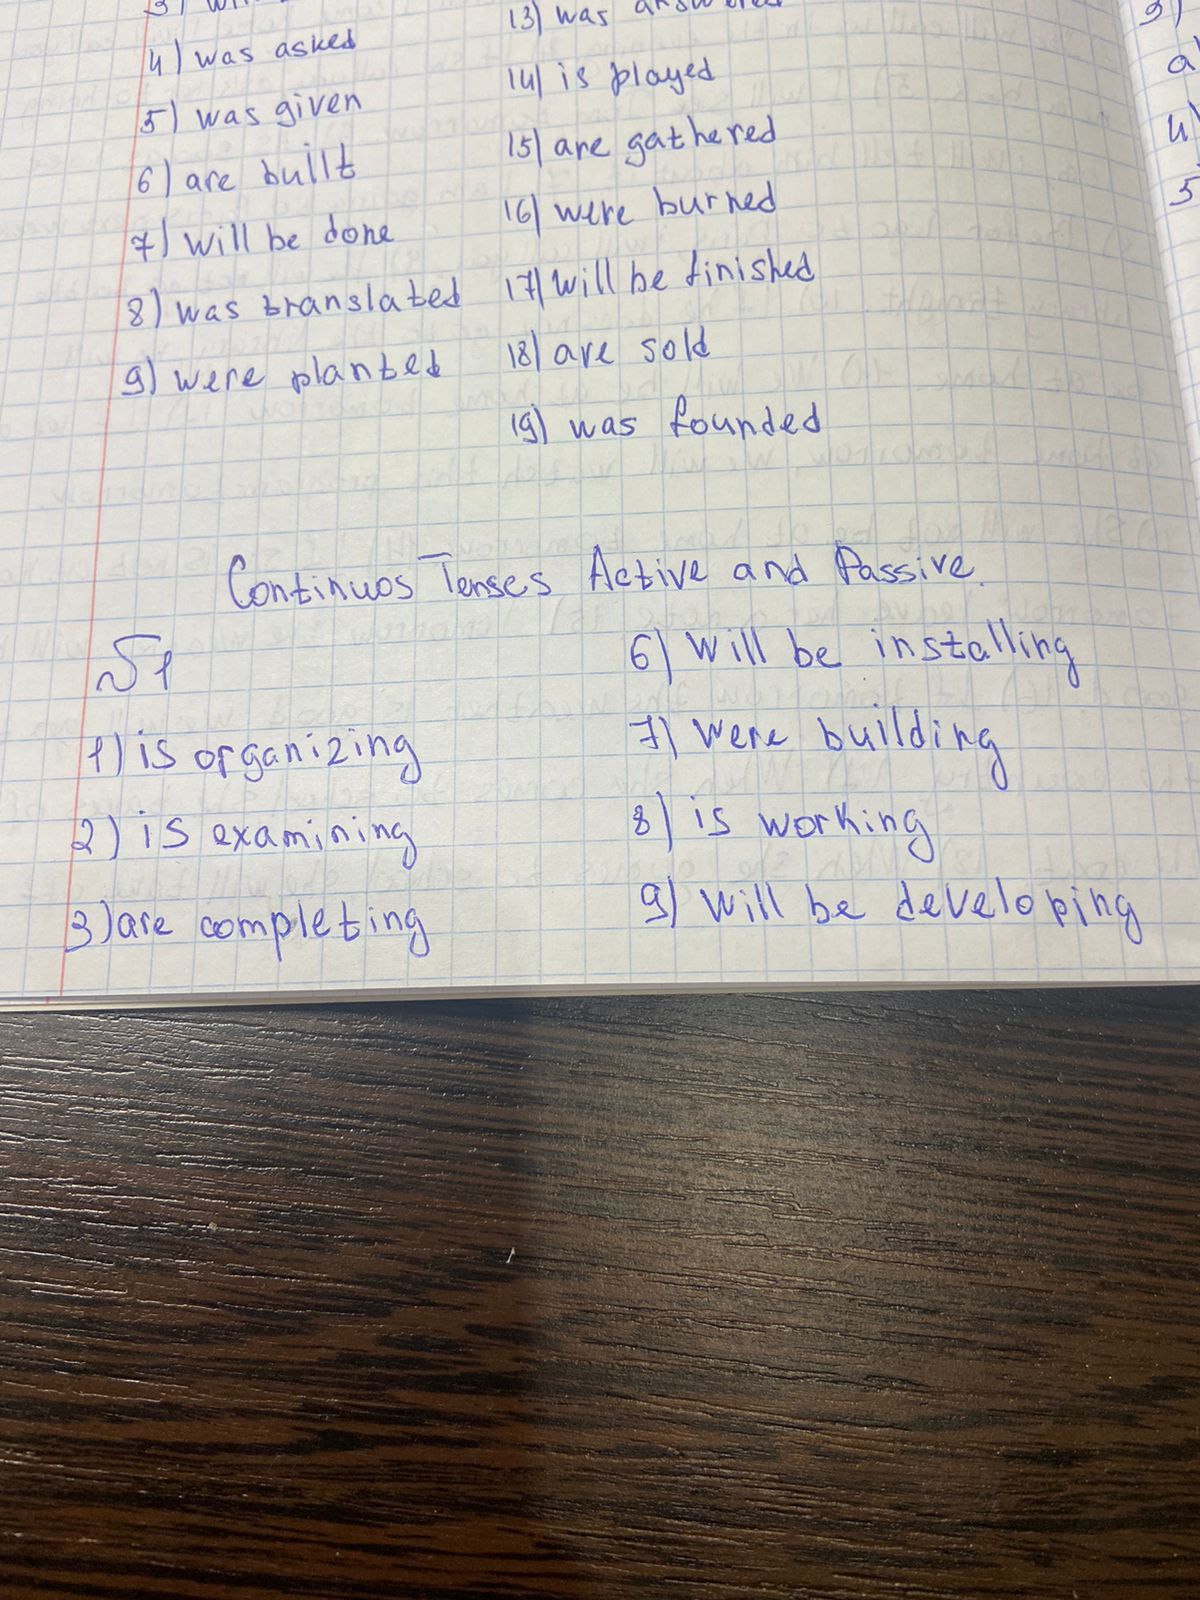 4) was asked
5) was given
6) are built
7) will be done
8) was translated
9) were planted
13) was answered
14) is played
15) are gathered
16) were burned
17) will be finished
18) are sold
19) was founded
Continuos Tenses Active and Passive.
№1
1) is organizing
2) is examining
3) are completing
6) Will be installing
7) were building
8) is working
9) will be developing
3)
4)
5